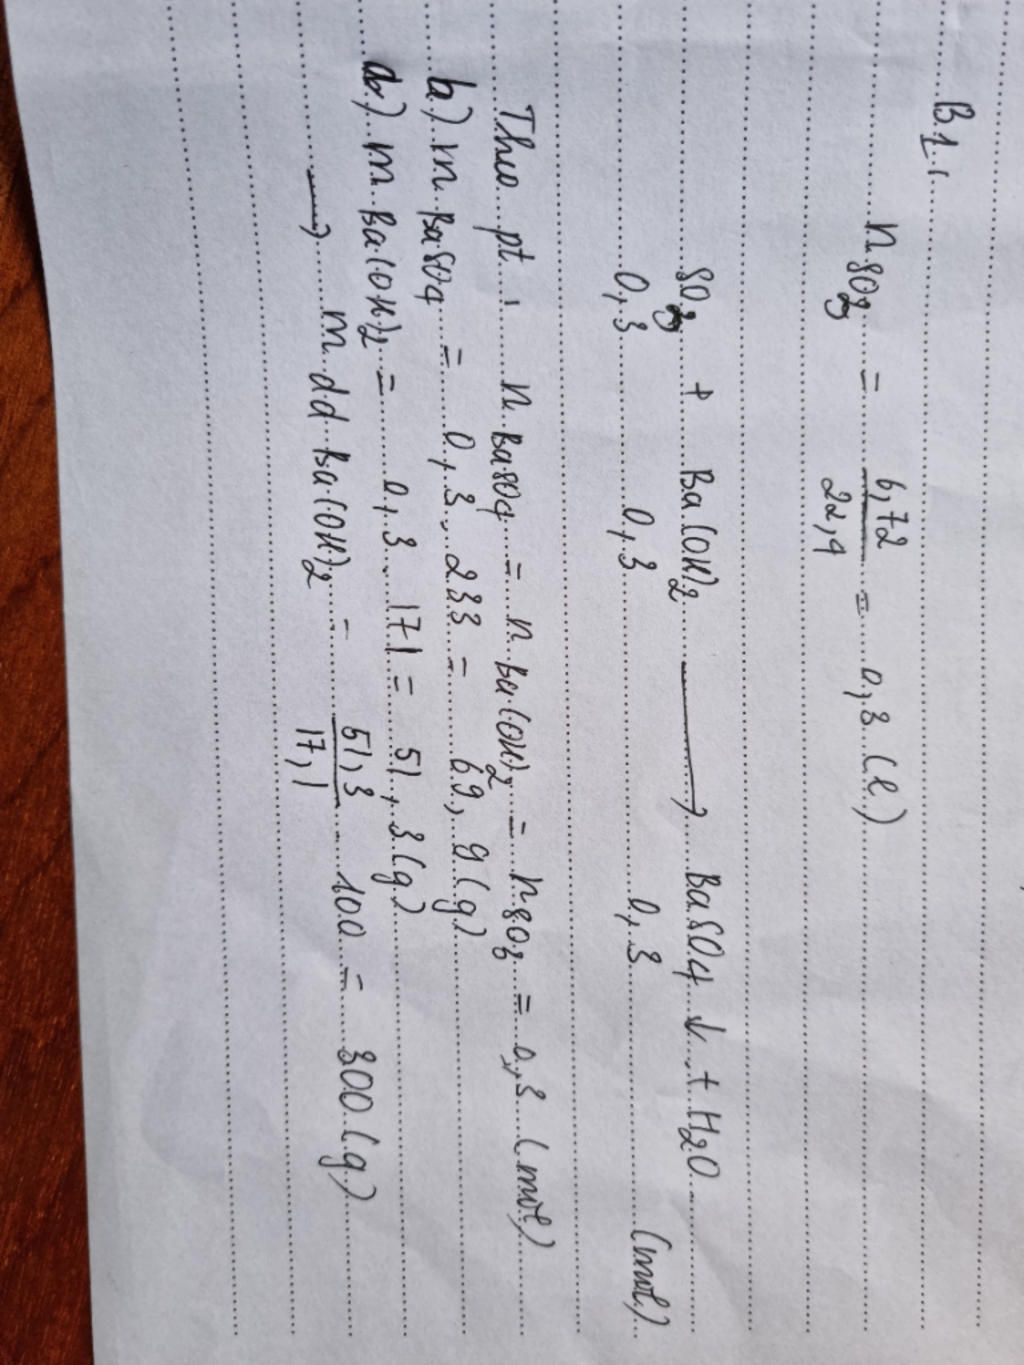 B1:
n SO3 = 6,72 / 22,4 = 0,3 (l)
SO3 + Ba(OH)2 ⟶ BaSO4 ↓ + H2O
0,3 0,3 0,3 (mol)
Theo pt : n BaSO4 = n Ba(OH)2 = n SO3 = 0,3 (mol)
b) m BaSO4 = 0,3 . 233 = 69,9 (g)
d) m Ba(OH)2 = 0,3 . 171 = 51,3 (g)
⟶ m dd Ba(OH)2 = 51,3 / 17,1 . 100 = 300 (g)